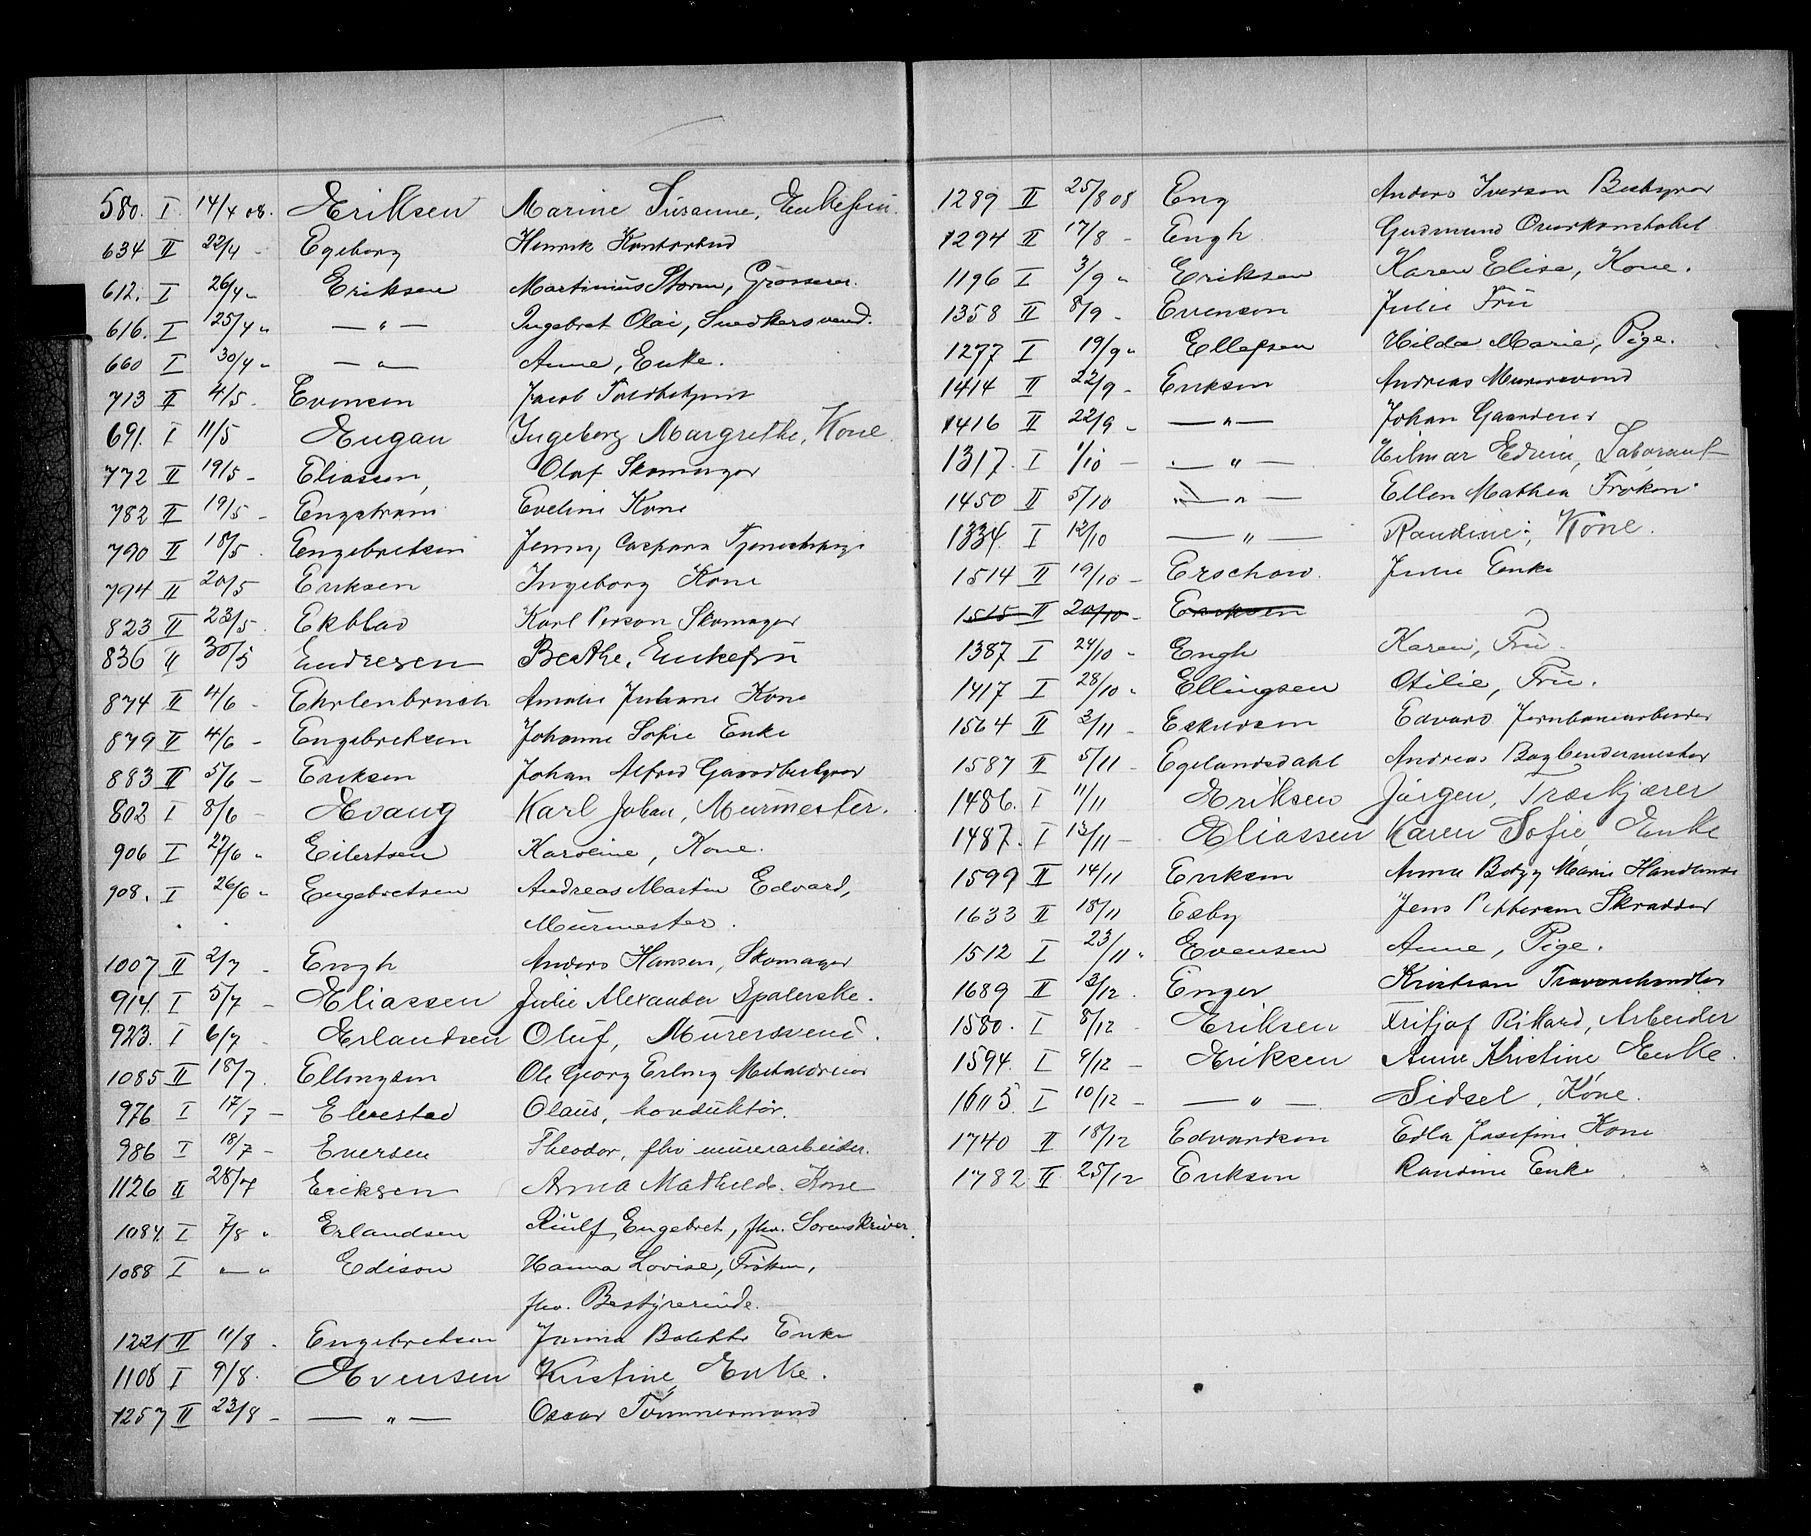 580. I 14/4 08. Eriksen Marine Susanne, Enkefru.
634 II 22/4 - Egeborg Henrik Kontorbud
612. I 26/4 " Eriksen Martinius Storm, Grosserer.
616. I 25/4 " — " — Ingebret Olai, Snedkersvend.
660 I 30/4 " — " — Anne, Enke.
713 II 4/5 - Evensen Jacob
691. I 11/5 Engan Ingeborg Margrethe, Kone.
772 II 19/5 - Eliassen, Olaf Skomager
782 II 19/5 - Engstrøm Eveline Kone
790 II 18/5 . Engebretsen Jenny Caspara Tjenestepige
794 II 20/5 Eriksen Ingeborg Kone
823 II 23/5 . Ekblad Karl Person Skomager
836 II 30/5 Endresen Berthe, Enkefru
874 II 4/6 - Ehrlenbruch Amalie Juliane Kone
879 II 4/6 - Engebretsen Johanne Sofie Enke
883 II 5/6 - Eriksen Johan Alfred Gaardbestyrer
802 I 8/6 - Evang Karl Johan, Murmester.
906 I 27/6 " Eilertsen Karoline, Kone.
908. I 26/6 " Engebretsen Andreas Martin Edvard,
Murmester.
1007 II 2/7 - Engh Anders Hansen, Skomager
914. I 5/7 - Eliassen Julie Alexander Spalerske.
923. I 6/7 - Erlandsen Oluf, Murersvend.
1085 II 18/7 . Ellingsen Ole Georg Erling Metaldreier
976 I 17/7 - Elvestad Olaus, konduktør.
986 I 18/7 - Eversen Theodor, fhv murerarbeider.
1126 II 28/7 Eriksen Anna Mathilde. Kone
1084. I 7/8 " Erlandsen Riulf Engebret, fhv. Sorenskriver.
1088 I " " Edison Hanna Lovise, Frøken,
fhv. Bestyrerinde.
1221 II 11/8 . Engebretsen Janna Bolette Enke
1108 I 9/8. Evensen Kristine Enke.
1257 II 23/8 - — " — Oscar Tømmermand
1289 II 25/8 08 Eng Anders Iversen Bestyrer
1294 II 17/8 - Engh Gudmund Overkonstabel
1196 I 3/9 " Eriksen Karen Elise, Kone.
1358 II 8/9 - Evensen Julie Fru
1277 I 19/9 " Ellefsen Hilda Marie, Pige.
1414 II 22/9 - Eriksen Andreas Murersvend
1416 II 22/9 - — " — Johan Gaardeier
1317. I 1/10 - — " — Hilmar Edvin, Laborant
1450 II 5/10 — " — Ellen Mathea Frøken.
1334. I 12/10 — " — Randine, Kone.
1514 II 19/10 - Erschow. Julie Enke
1515 II 20/10 - Eriksen
1387 I 24/10 " Engh Karen, Fru.
1417 I 28/10 " Ellingsen Otilie, Fru.
1564 II 3/11 - Eskildsen Edvard Jernbanearbeider
1587 II 5/11 - Egelandsdahl Andreas Bogbindermester
1486. I 11/11 Eriksen Jørgen, Træskjærer
1487. I 13/11 - Eliassen Karen Sofie Enke
1599 II 14/11 Eriksen Anna Marie Handlende
1633 II 18/11 Esby Jens Petersen Skrædder
1512 I 23/11 " Evensen Anne, Pige.
1689 II 3/12 . Enger Kristian Trævarehandler
1580. I 8/12 - Eriksen Fritjof Rikard, Arbeider
1594. I 9/12 - Eriksen Anne Kristine Enke.
1605. I 10/12 - — " — Sidsel, Kone.
1740 II 18/12 Edvardsen Edla Josefine Kone
1782 II 25/12 Eriksen Randine Enke